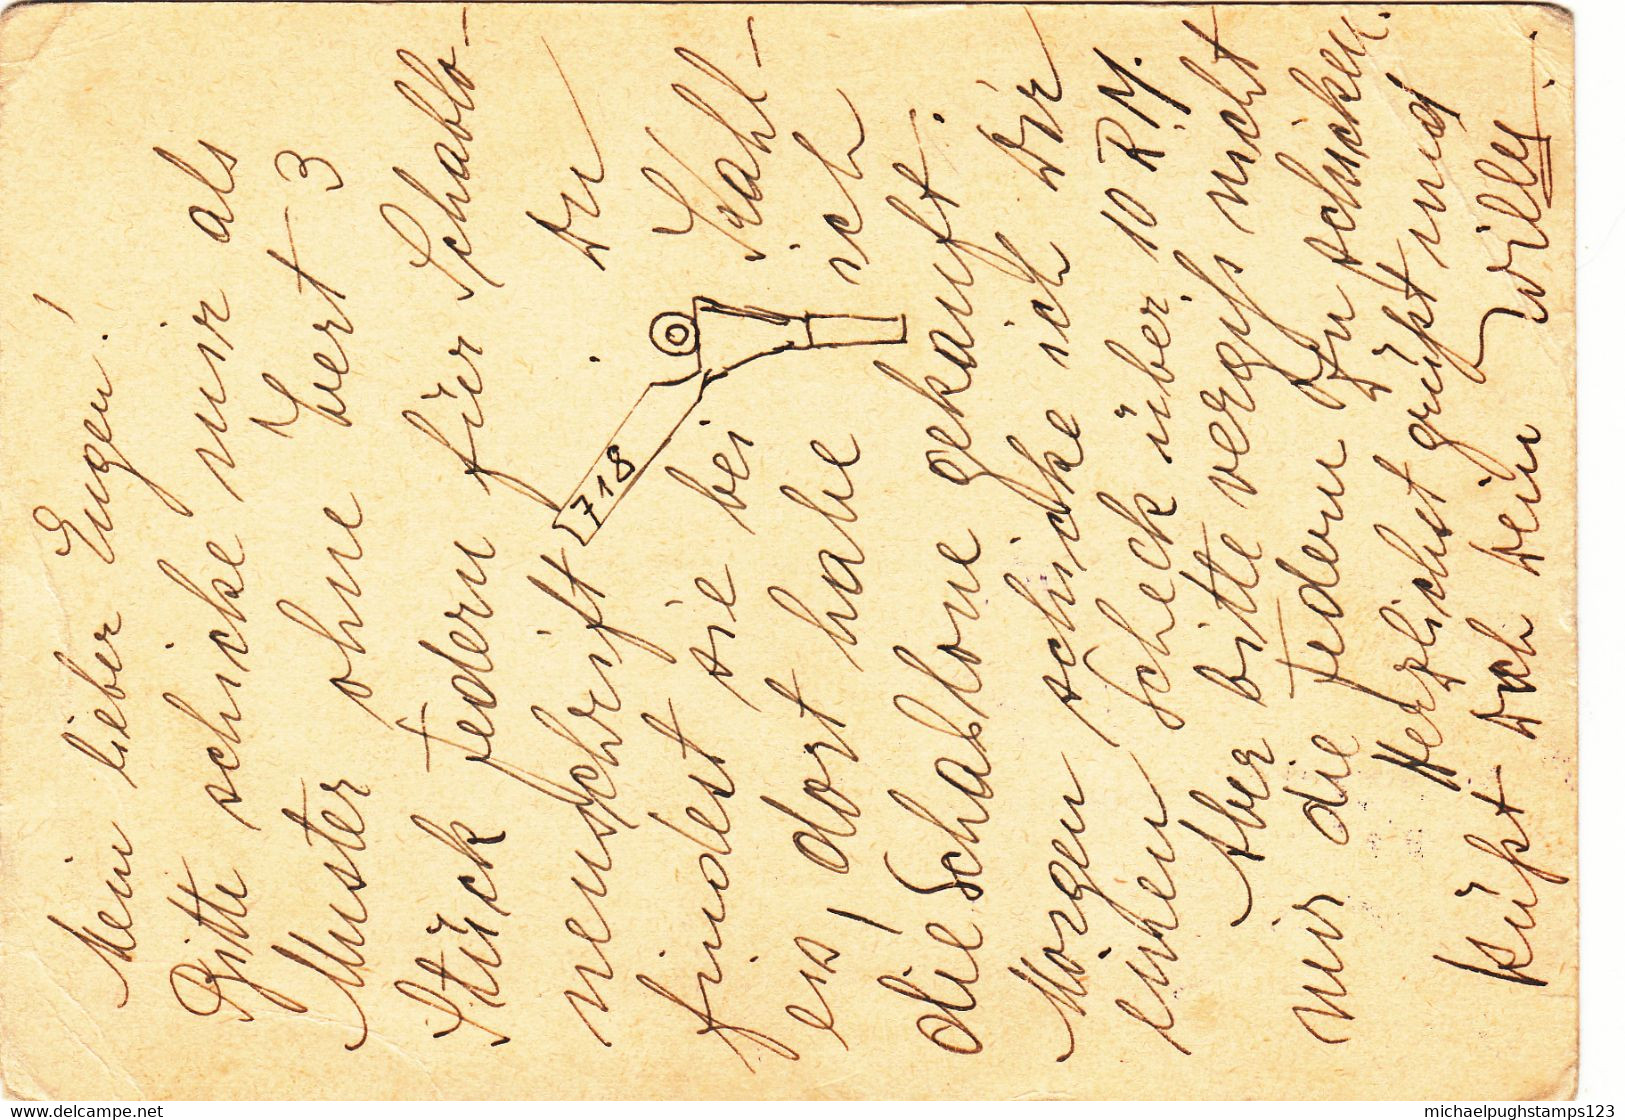 Mein lieber Eugen!
Bitte schicke mir als
Muster ohne Wert 3
Stück Federn für Schablo-
nenschrift 718 . Du
findest sie bei Stahl-
es, dort habe ich
die Schablone gekauft.
Morgen schicke ich Dir
einen Scheck über 10 RM.
Aber bitte vergiß nicht
mir die Federn zu schicken.
Herzlichst grüßt und
küßt Dich Dein Willy.
www.delcampe.net
michaelpughstamps123